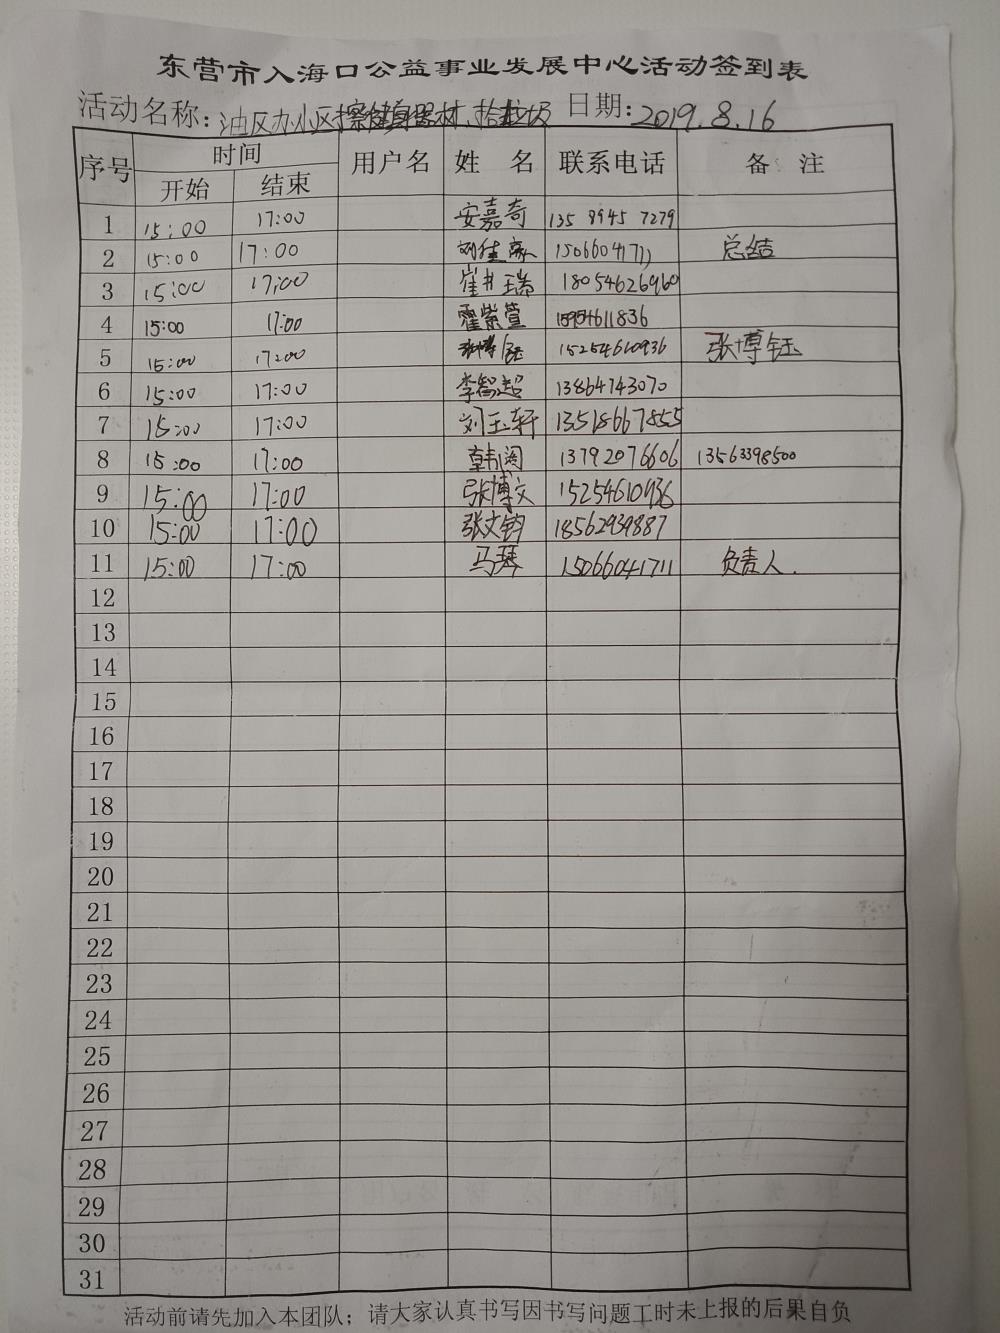 东营市入海口公益事业发展中心活动签到表
活动名称：油区办小区擦健身器材、拾垃圾 日期：2019.8.16
序号 时间 用户名 姓 名 联系电话 备 注
开始 结束
1 15:00 17:00 安嘉奇 135 8945 7279
2 15:00 17:00 刘佳 150660417 总结
3 15:00 17:00 崔井瑞 18054626960
4 15:00 17:00 霍紫萱 15954611836
5 15:00 17:00 张博钰 15254610936 张博钰
6 15:00 17:00 李智超 13864743070
7 15:00 17:00 刘玉轩 13518667855
8 15:00 17:00 韩阅 13792076606 13563398500
9 15:00 17:00 张博文 15254610936
10 15:00 17:00 张文钧 18562939887
11 15:00 17:00 马琴 15066041711 负责人.
12
13
14
15
16
17
18
19
20
21
22
23
24
25
26
27
28
29
30
31
活动前请先加入本团队；请大家认真书写因书写问题工时未上报的后果自负